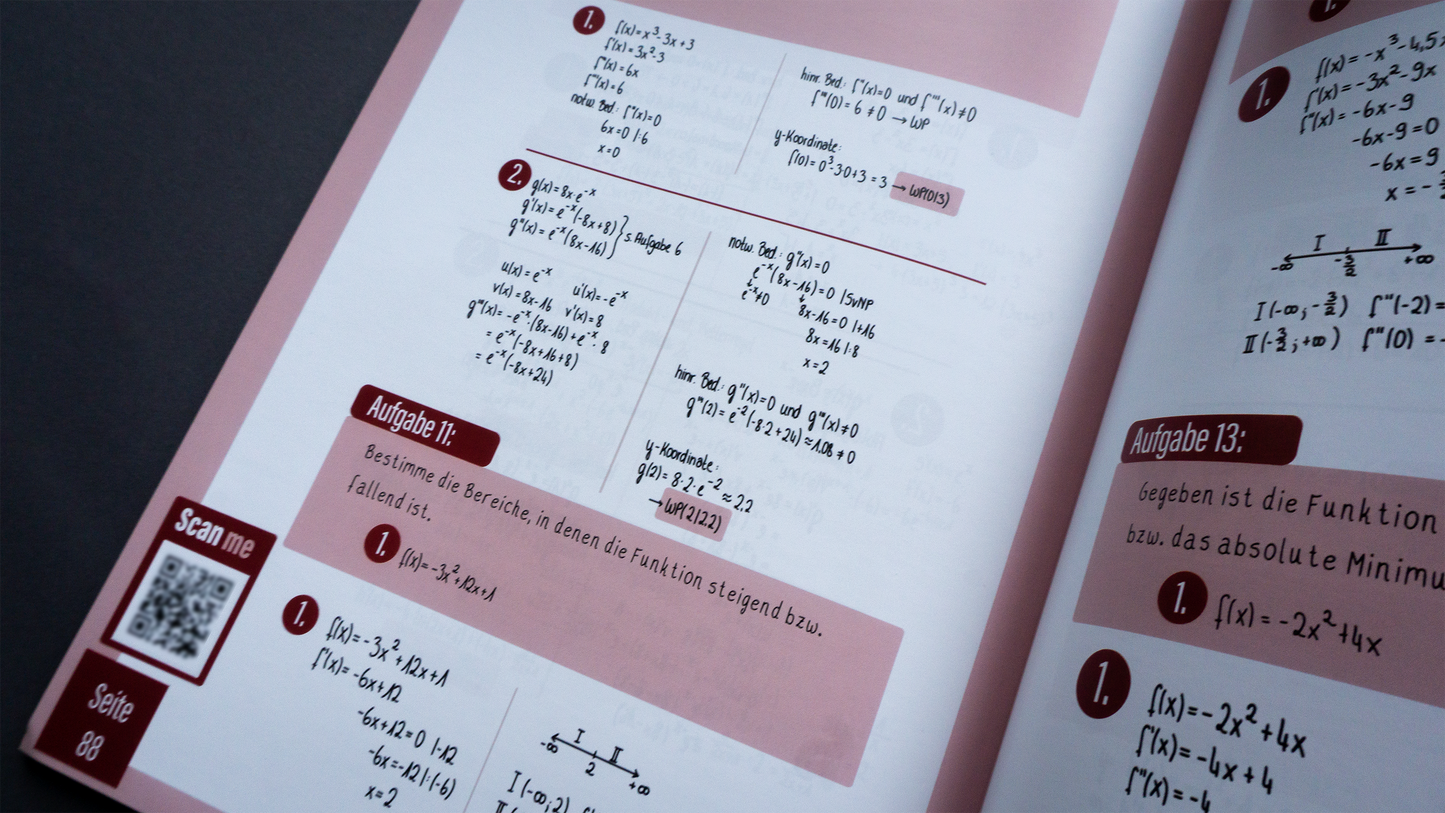 1.
f(x)=x³-3x+3
f'(x)=3x²-3
f''(x)=6x
f'''(x)=6
notw. Bed.: f''(x)=0
6x=0 |:6
x=0
hinr. Bed.: f''(x)=0 und f'''(x)≠0
f'''(0)=6≠0 → WP
y-Koordinate:
f(0)=0³-3·0+3=3 → WP(0|3)
2.
g(x)=8x·e^-x
g'(x)=e^-x(-8x+8)
g''(x)=e^-x(8x-16)
} s. Aufgabe 6
u(x)=e^-x u'(x)=-e^-x
v(x)=8x-16 v'(x)=8
g'''(x)=-e^-x·(8x-16)+e^-x·8
=e^-x(-8x+16+8)
=e^-x(-8x+24)
notw. Bed.: g''(x)=0
e^-x(8x-16)=0 |SvNP
↓ ↓
e^-x≠0 8x-16=0 |+16
8x=16 |:8
x=2
hinr. Bed.: g''(x)=0 und g'''(x)≠0
g'''(2)=e^-2(-8·2+24)≈1.08≠0
y-Koordinate:
g(2)=8·2·e^-2≈2,2
→ WP(2|2,2)
Aufgabe 11:
Bestimme die Bereiche, in denen die Funktion steigend bzw.
fallend ist.
1. f(x)=-3x²+12x+1
1.
f(x)=-3x²+12x+1
f'(x)=-6x+12
-6x+12=0 |-12
-6x=-12 |:(-6)
x=2
I II
-∞ 2 +∞
I (-∞;2)
Scan me
Seite
88
1.
f(x)=-x³-4,5
f'(x)=-3x²-9x
f''(x)=-6x-9
-6x-9=0
-6x=9
x=-
I II
-∞ -3/2 +∞
I (-∞;-3/2) f''(-2)=
II (-3/2;+∞) f''(0)=-
Aufgabe 13:
Gegeben ist die Funktion
bzw. das absolute Minimu
1. f(x)=-2x²+4x
1.
f(x)=-2x²+4x
f'(x)=-4x+4
f''(x)=-4